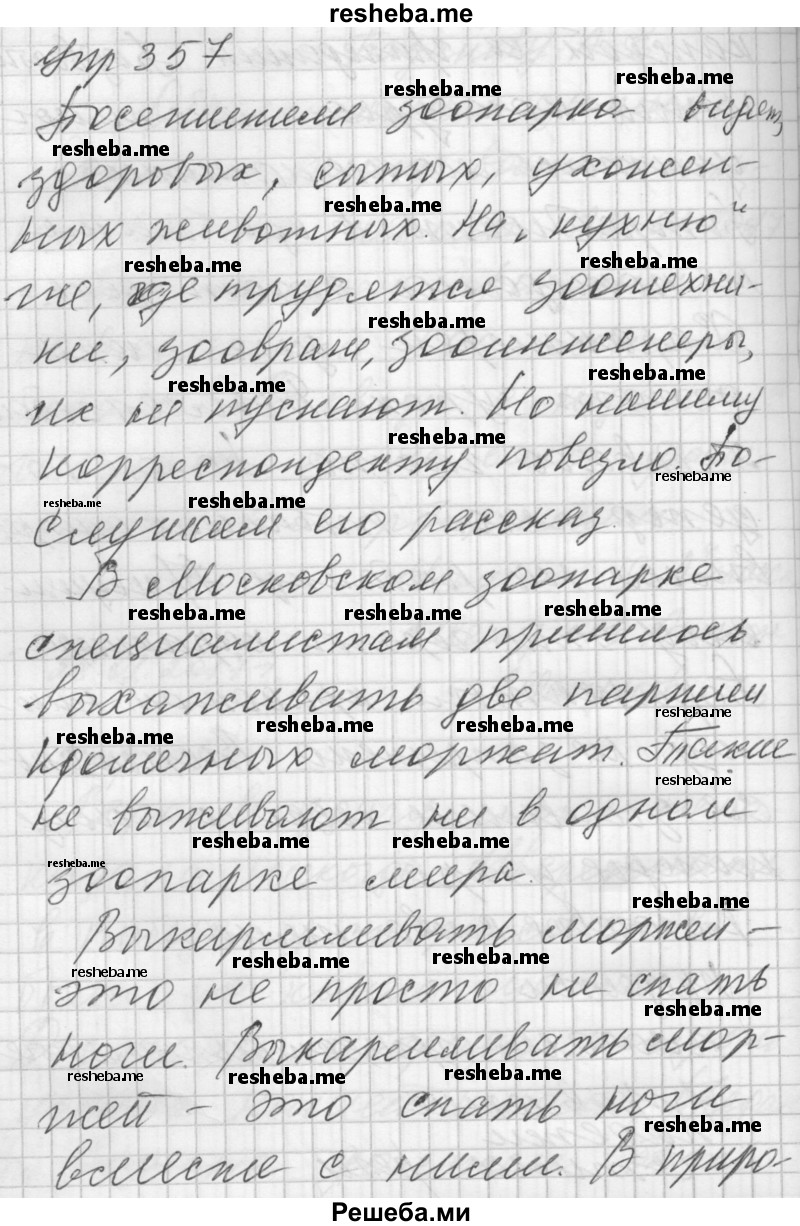 resheba.me
Упр 357
Посетители зоопарка видят
здоровых, сытых, ухожен-
ных животных. На „кухню“
же, где трудятся зоотехни-
ки, зооврачи, зооинженеры,
их не пускают. Но нашему
корреспонденту повезло. По-
слушаем его рассказ.
В Московском зоопарке
специалистам пришлось
выхаживать две партии
крошечных моржат. Такие
не выживают ни в одном
зоопарке мира.
Выкармливать моржей –
это не просто не спать
ночи. Выкармливать мор-
жей – это спать ночи
вместе с ними. В приро-
Решеба.ми